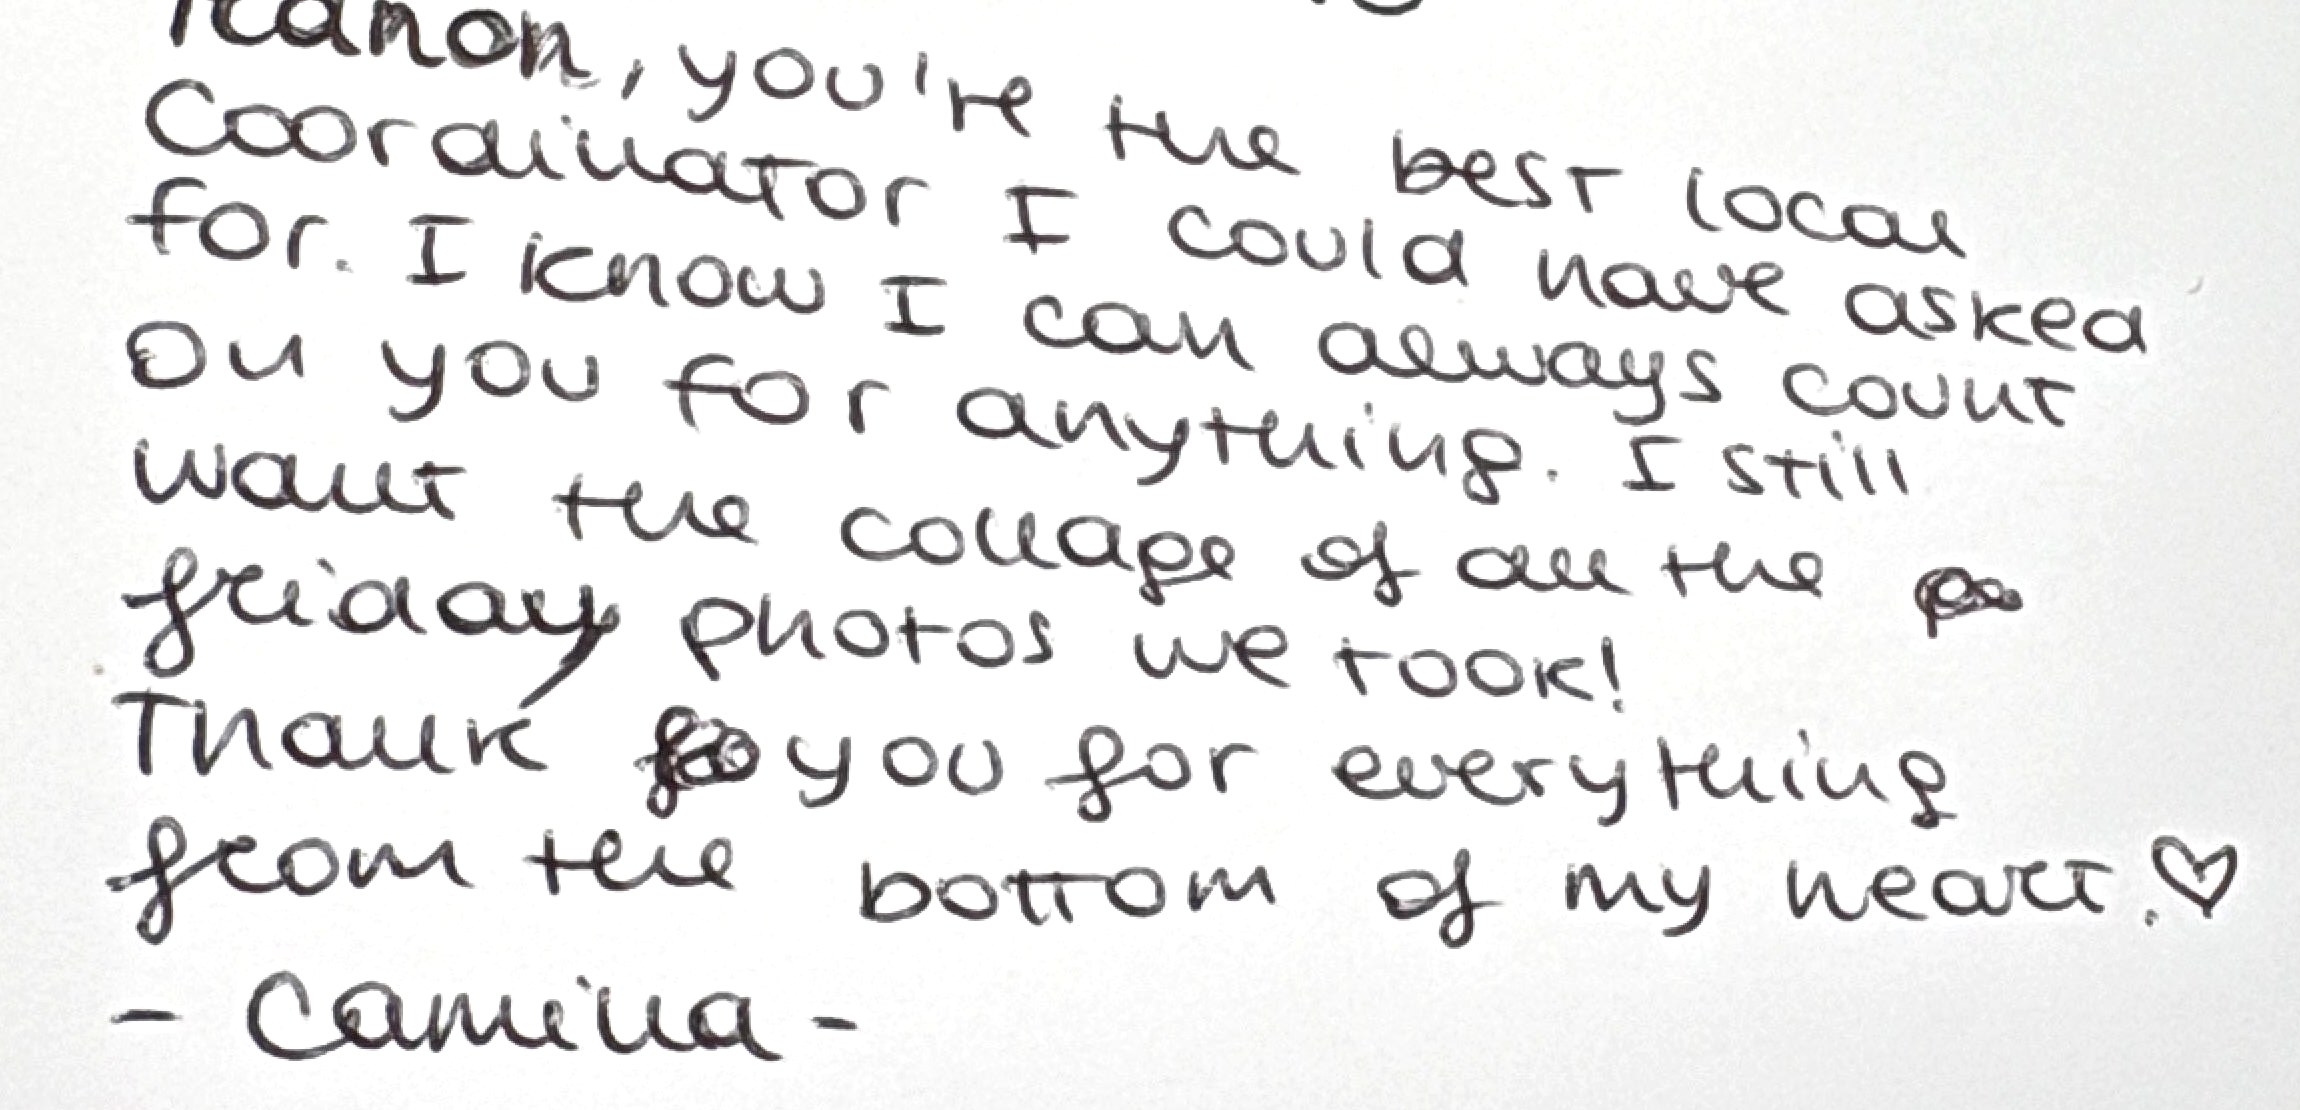 Kanon, you're the best local
Coordinator I could have asked
for. I know I can always count
On you for anything. I still
want the collage of all the
friday photos we took!
Thank you for everything
from the bottom of my heart.♡
- Camilla -